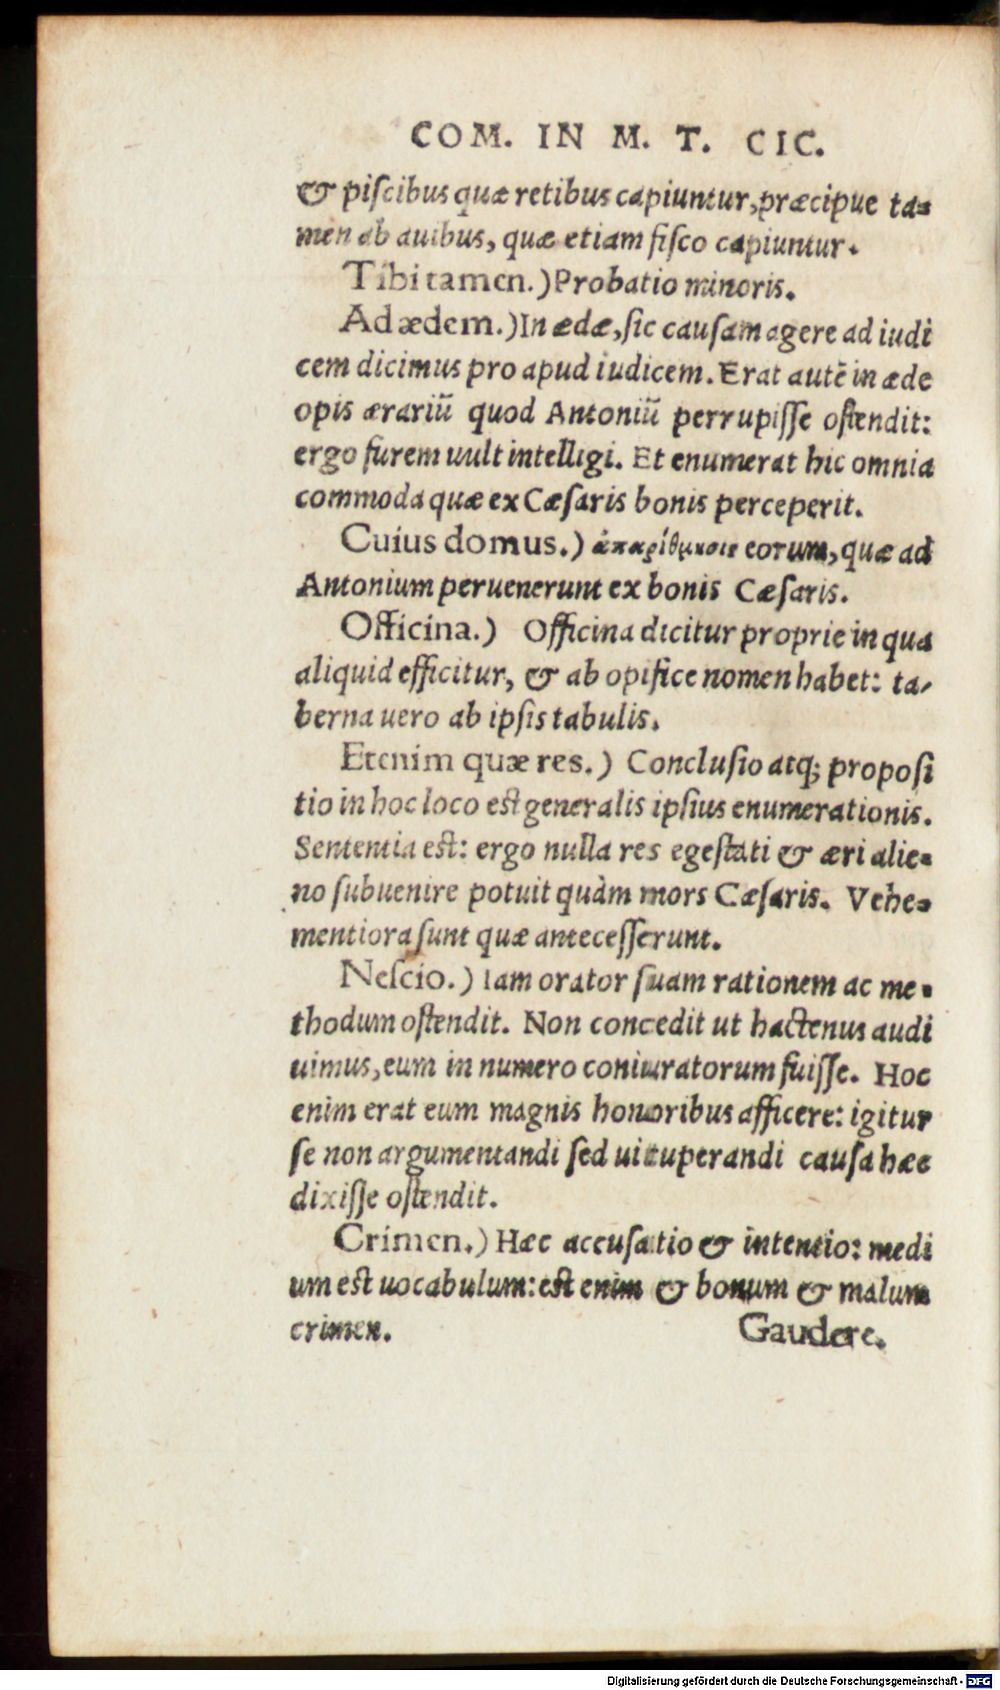 COM. IN M. T. CIC.
& piſcibus quæ retibus capiuntur, præcipue ta-
men ab auibus, quæ etiam fiſco capiuntur.
Tibi tamen.) Probatio minoris.
Ad ædem.) In ædæ, ſic cauſam agere ad iudi
cem dicimus pro apud iudicem. Erat autē in æde
opis ærariū quod Antoniū perrupiſſe oſtendit:
ergo furem uult intelligi. Et enumerat hic omnia
commoda quæ ex Cæſaris bonis perceperit.
Cuius domus.) ἀπαρίθμησις eorum, quæ ad
Antonium peruenerunt ex bonis Cæſaris.
Officina.) Officina dicitur proprie in qua
aliquid efficitur, & ab opifice nomen habet: ta-
berna uero ab ipſis tabulis.
Etenim quæ res.) Concluſio atq; propoſi
tio in hoc loco eſt generalis ipſius enumerationis.
Sententia eſt: ergo nulla res egeſtati & æri alie-
no ſubuenire potuit quàm mors Cæſaris. Vehe-
mentiora ſunt quæ anteceſſerunt.
Neſcio.) Iam orator ſuam rationem ac me-
thodum oſtendit. Non concedit ut hactenus audi
uimus, eum in numero coniuratorum fuiſſe. Hoc
enim erat eum magnis honoribus afficere: igitur
ſe non argumentandi ſed uituperandi cauſa hæc
dixiſſe oſtendit.
Crimen.) Hæc accuſatio & intentio: medi
um eſt uocabulum: eſt enim & bonum & malum
crimen. Gaudere.
Digitalisierung gefördert durch die Deutsche Forschungsgemeinschaft - DFG